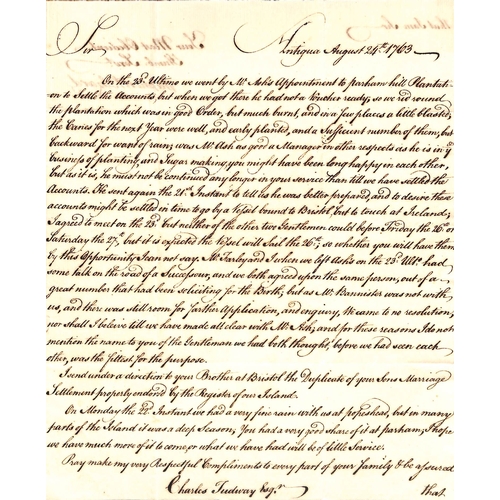 Sir Antigua August 24th. 1763
On the 23d. Ultimo we went by Mr. Ash's Appointment to parham hill Plantati-
on to Settle the Accounts, but when we got there he had not a Voucher ready, so we red round
the plantation which was in good Order, but much burnt, and in a few places a little blasted,
the Canes for the next Year were well, and early planted, and a Sufficient number of them, but
backward for want of rain; was Mr. Ash as good a Manager in other respects as he is in ye.
business of planting, and Sugar making, you might have been long happy in each other,
but as it is, he must not be continued any longer in your service than till we have settled the
Accounts. He sent again the 21st. Instant to tell us he was better prepared, and to desire these
accounts might be settled in time to go by a Vessel bound to Bristol, but to touch at Ireland;
I agreed to meet on the 23d. but neither of the other two Gentlemen could before Friday the 26th. or
Saturday the 27th. but it is expected the Vessel will Sail the 26th. so whether you will have them
by this Opportunity I can not say. Mr. Farley and I when we left Ashs on the 23d. Ulto. had
some talk on the road of a Successour, and we both agreed upon the same person, out of a
great number that had been Soliciting for the Birth; but as Mr. Bannister was not with
us, and there was still room for farther Application, and enquiry, We came to no resolution,
nor shall I beleive till we have made all clear with Mr. Ash; and for these reasons I do not
mention the name to you of the Gentleman we had both thought, before we had seen each
other, was the fittest for the purpose.
I send under a direction to your Brother at Bristol the Duplicate of your Sons Marriage
Settlement properly endorsed by the Register of our Island.
On Monday the 22d. Instant we had a very fine rain with us at popeshead, but in many
parts of the Island it was a deep Season; You had a very good share of it at parham; I hope
we have much more of it to come or what we have had will be of little Service.
Pray make my very Respectful Compliments to every part of your Family & be assured
Charles Tudway Esqr. that